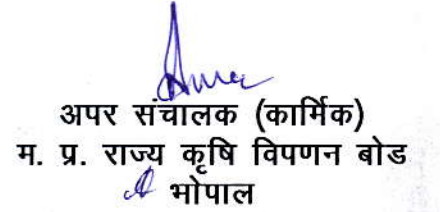 अपर संचालक (कार्मिक)
म. प्र. राज्य कृषि विपणन बोड
भोपाल